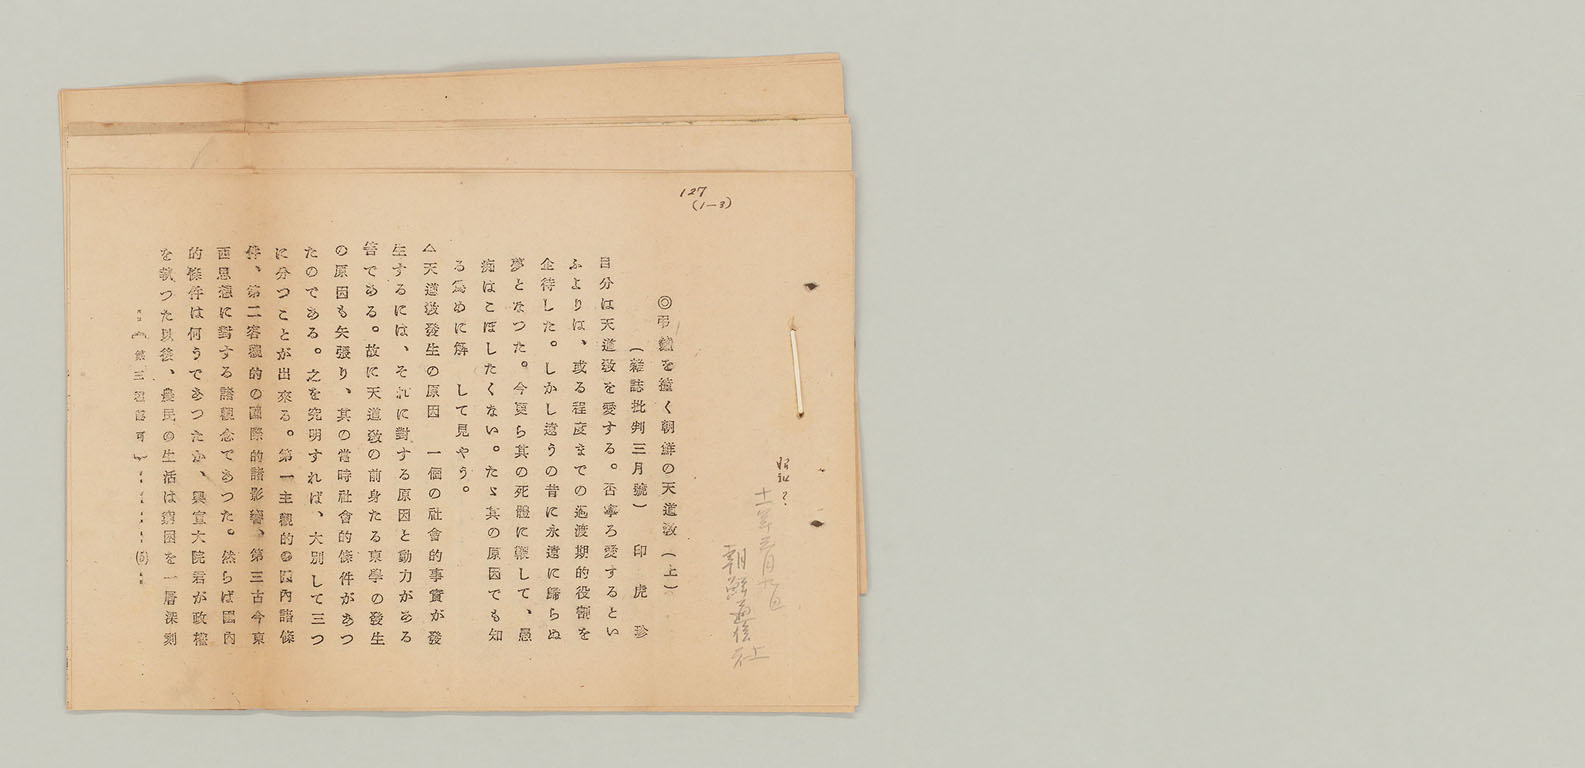 127
(1-3)
昭和?
十一年三月九日
朝鮮通信社
◎弔鐘を撞く朝鮮の天道教(上)
(雑誌批判三月號) 印虎珍
自分は天道教を愛する。否寧ろ愛するとい
ふよりは、或る程度までの過渡期的役割を
企待した。しかし遠うの昔に永遠に歸らぬ
夢となつた。今更ら其の死體に鞭して、愚
痴はこぼしたくない。たゞ其の原因でも知
る為めに解 して見やう。
△天道教發生の原因 一個の社會的事實が發
生するには、それに對する原因と動力がある
筈である。故に天道教の前身たる東學の發生
の原因も矢張り、其の當時社會的條件があつ
たのである。之を究明すれば、大別して三つ
に分つことが出來る。第一主觀的の國內諸條
件、第二客觀的の國際的諸影響、第三古今東
西思想に對する諸觀念であつた。然らば國內
的條件は何うであつたか、興宣大院君が政權
を執つた以後、農民の生活は窮困を一層深刻
第三種認可
(5)